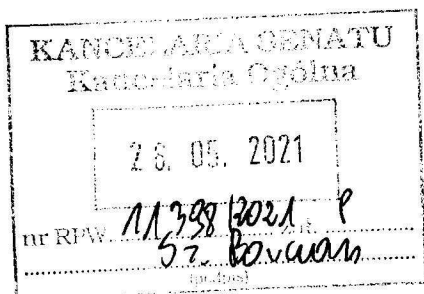 KANCELARIA SENATU
Kancelaria Ogólna
26. 05. 2021
nr RPW 11398/2021 P
(podpis)